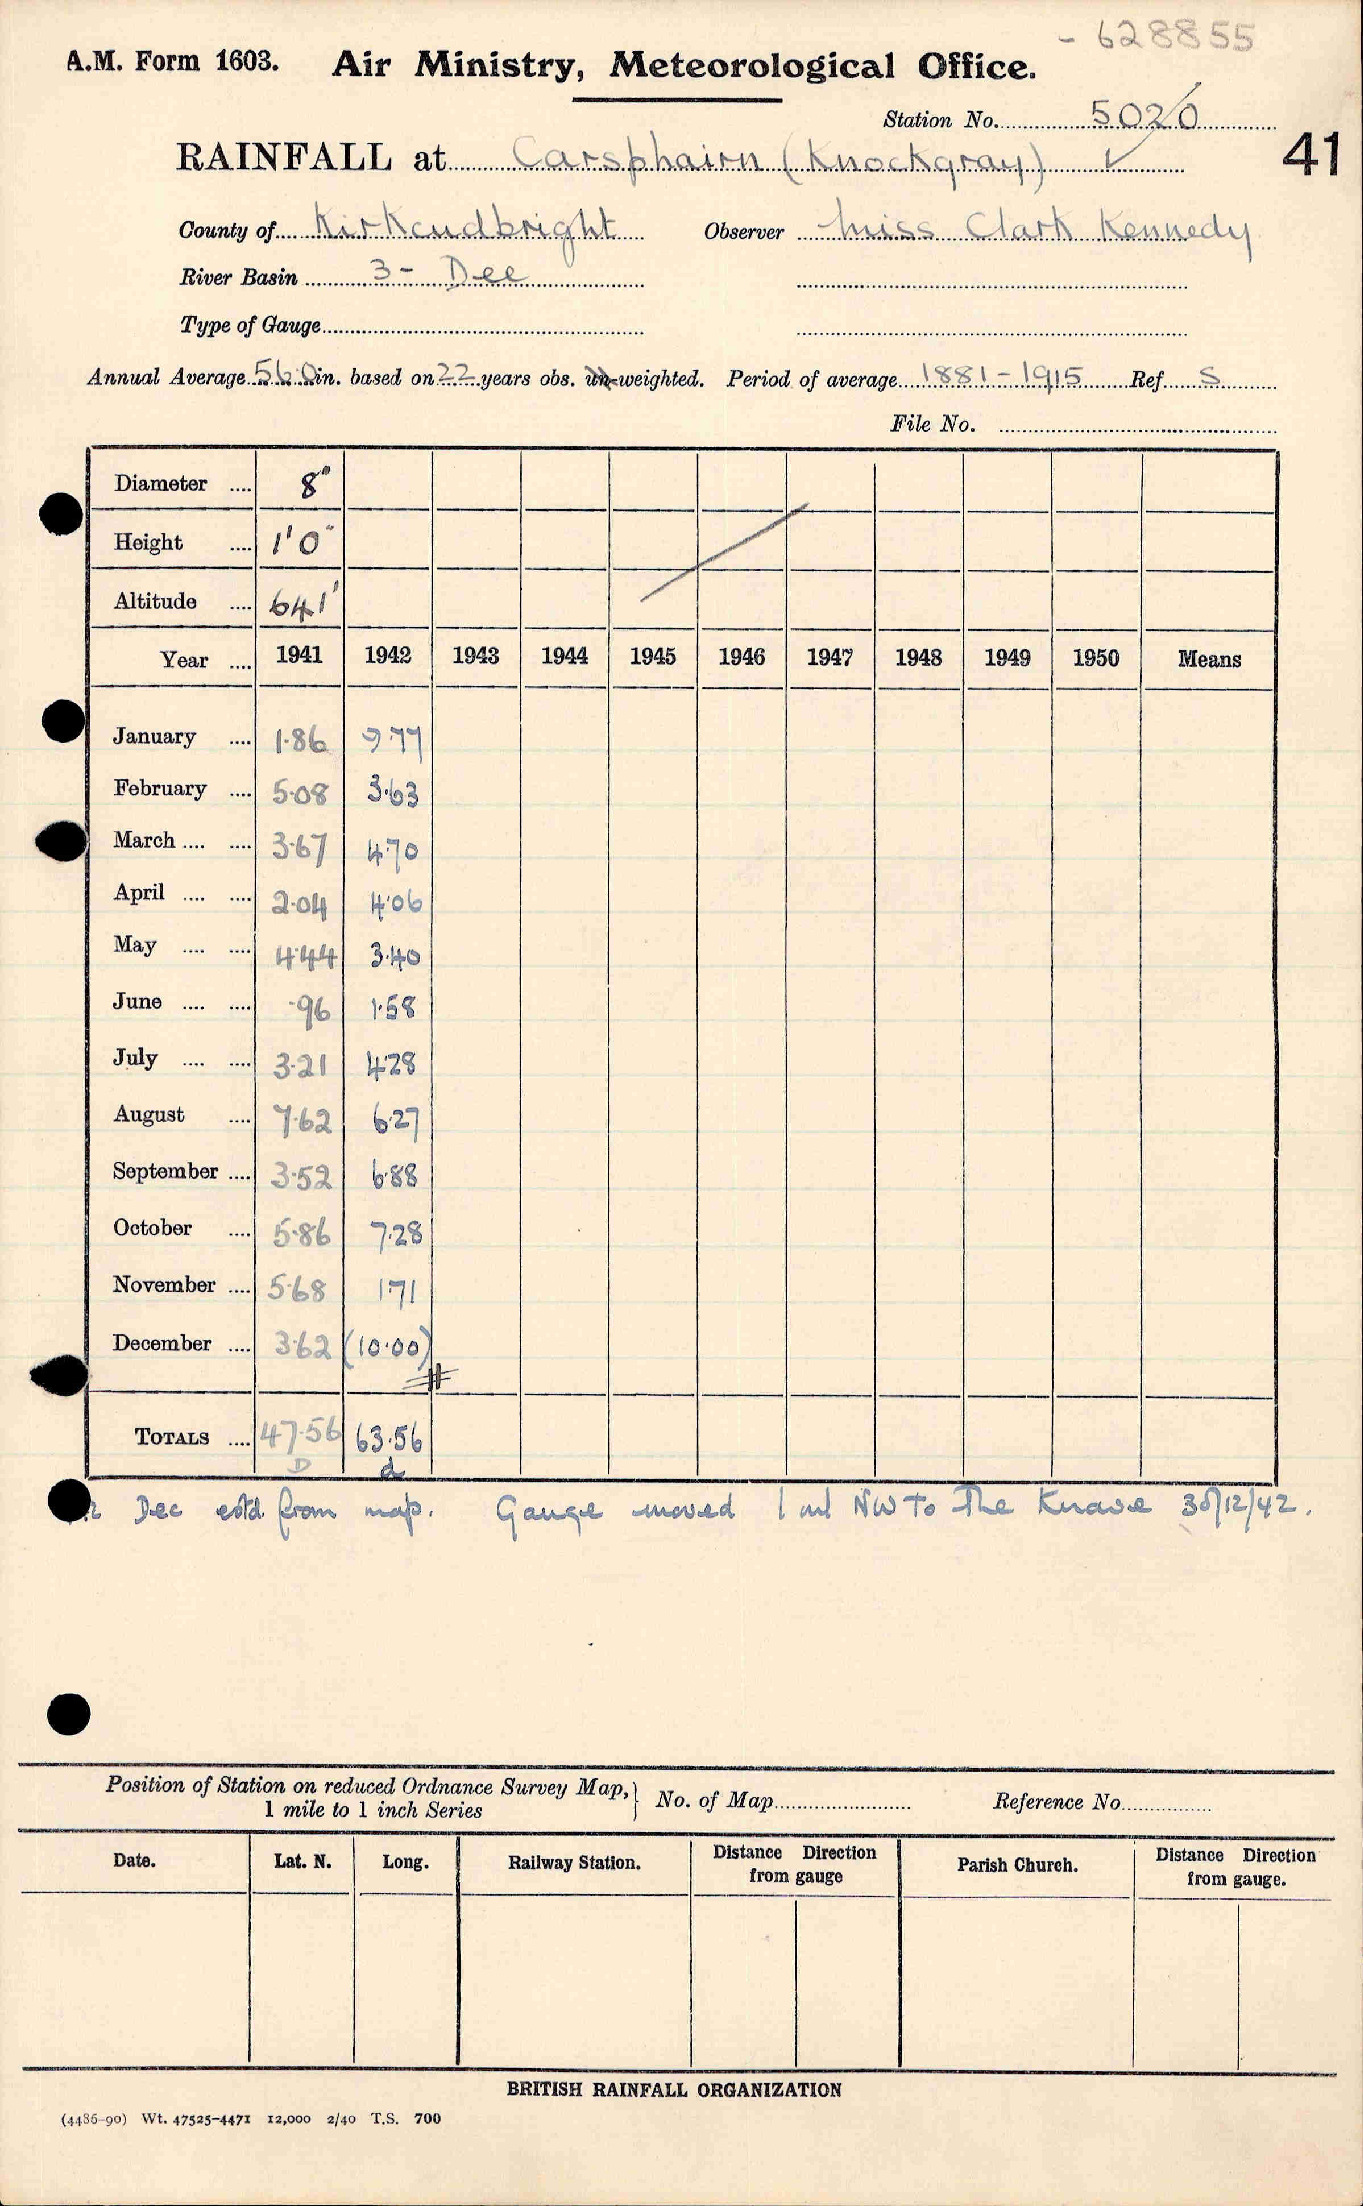 - 628855
A.M. Form 1603. Air Ministry, Meteorological Office.
Station No. 5020
41
RAINFALL at Carsphairn (Knockgray) ✓
County of Kirkcudbright Observer Miss Clark Kennedy
River Basin 3 - Dee
Type of Gauge
Annual Average 56.0 in. based on 22 years obs. un-weighted. Period of average 1881-1915 Ref. S
File No.
Diameter .... 8"
Height .... 1'0"
Altitude .... 641'
Year .... 1941 1942 1943 1944 1945 1946 1947 1948 1949 1950 Means
January .... 1.86 9.77
February .... 5.08 3.63
March .... .... 3.67 4.70
April .... .... 2.04 4.06
May .... .... 4.44 3.40
June .... .... .96 1.58
July .... .... 3.21 4.28
August .... 7.62 6.27
September .... 3.52 6.88
October .... 5.86 7.28
November .... 5.68 1.71
December .... 3.62 (10.00)
TOTALS .... 47.56 63.56
D d
Dec estd from map. Gauge moved 1 ml NW to The /12/42.
Position of Station on reduced Ordnance Survey Map, } No. of Map Reference No.
1 mile to 1 inch Series
Date. Lat. N. Long. Railway Station. Distance Direction from gauge Parish Church. Distance Direction from gauge.
BRITISH RAINFALL ORGANIZATION
(4486-90) Wt. 47525-4471 12,000 2/40 T.S. 700